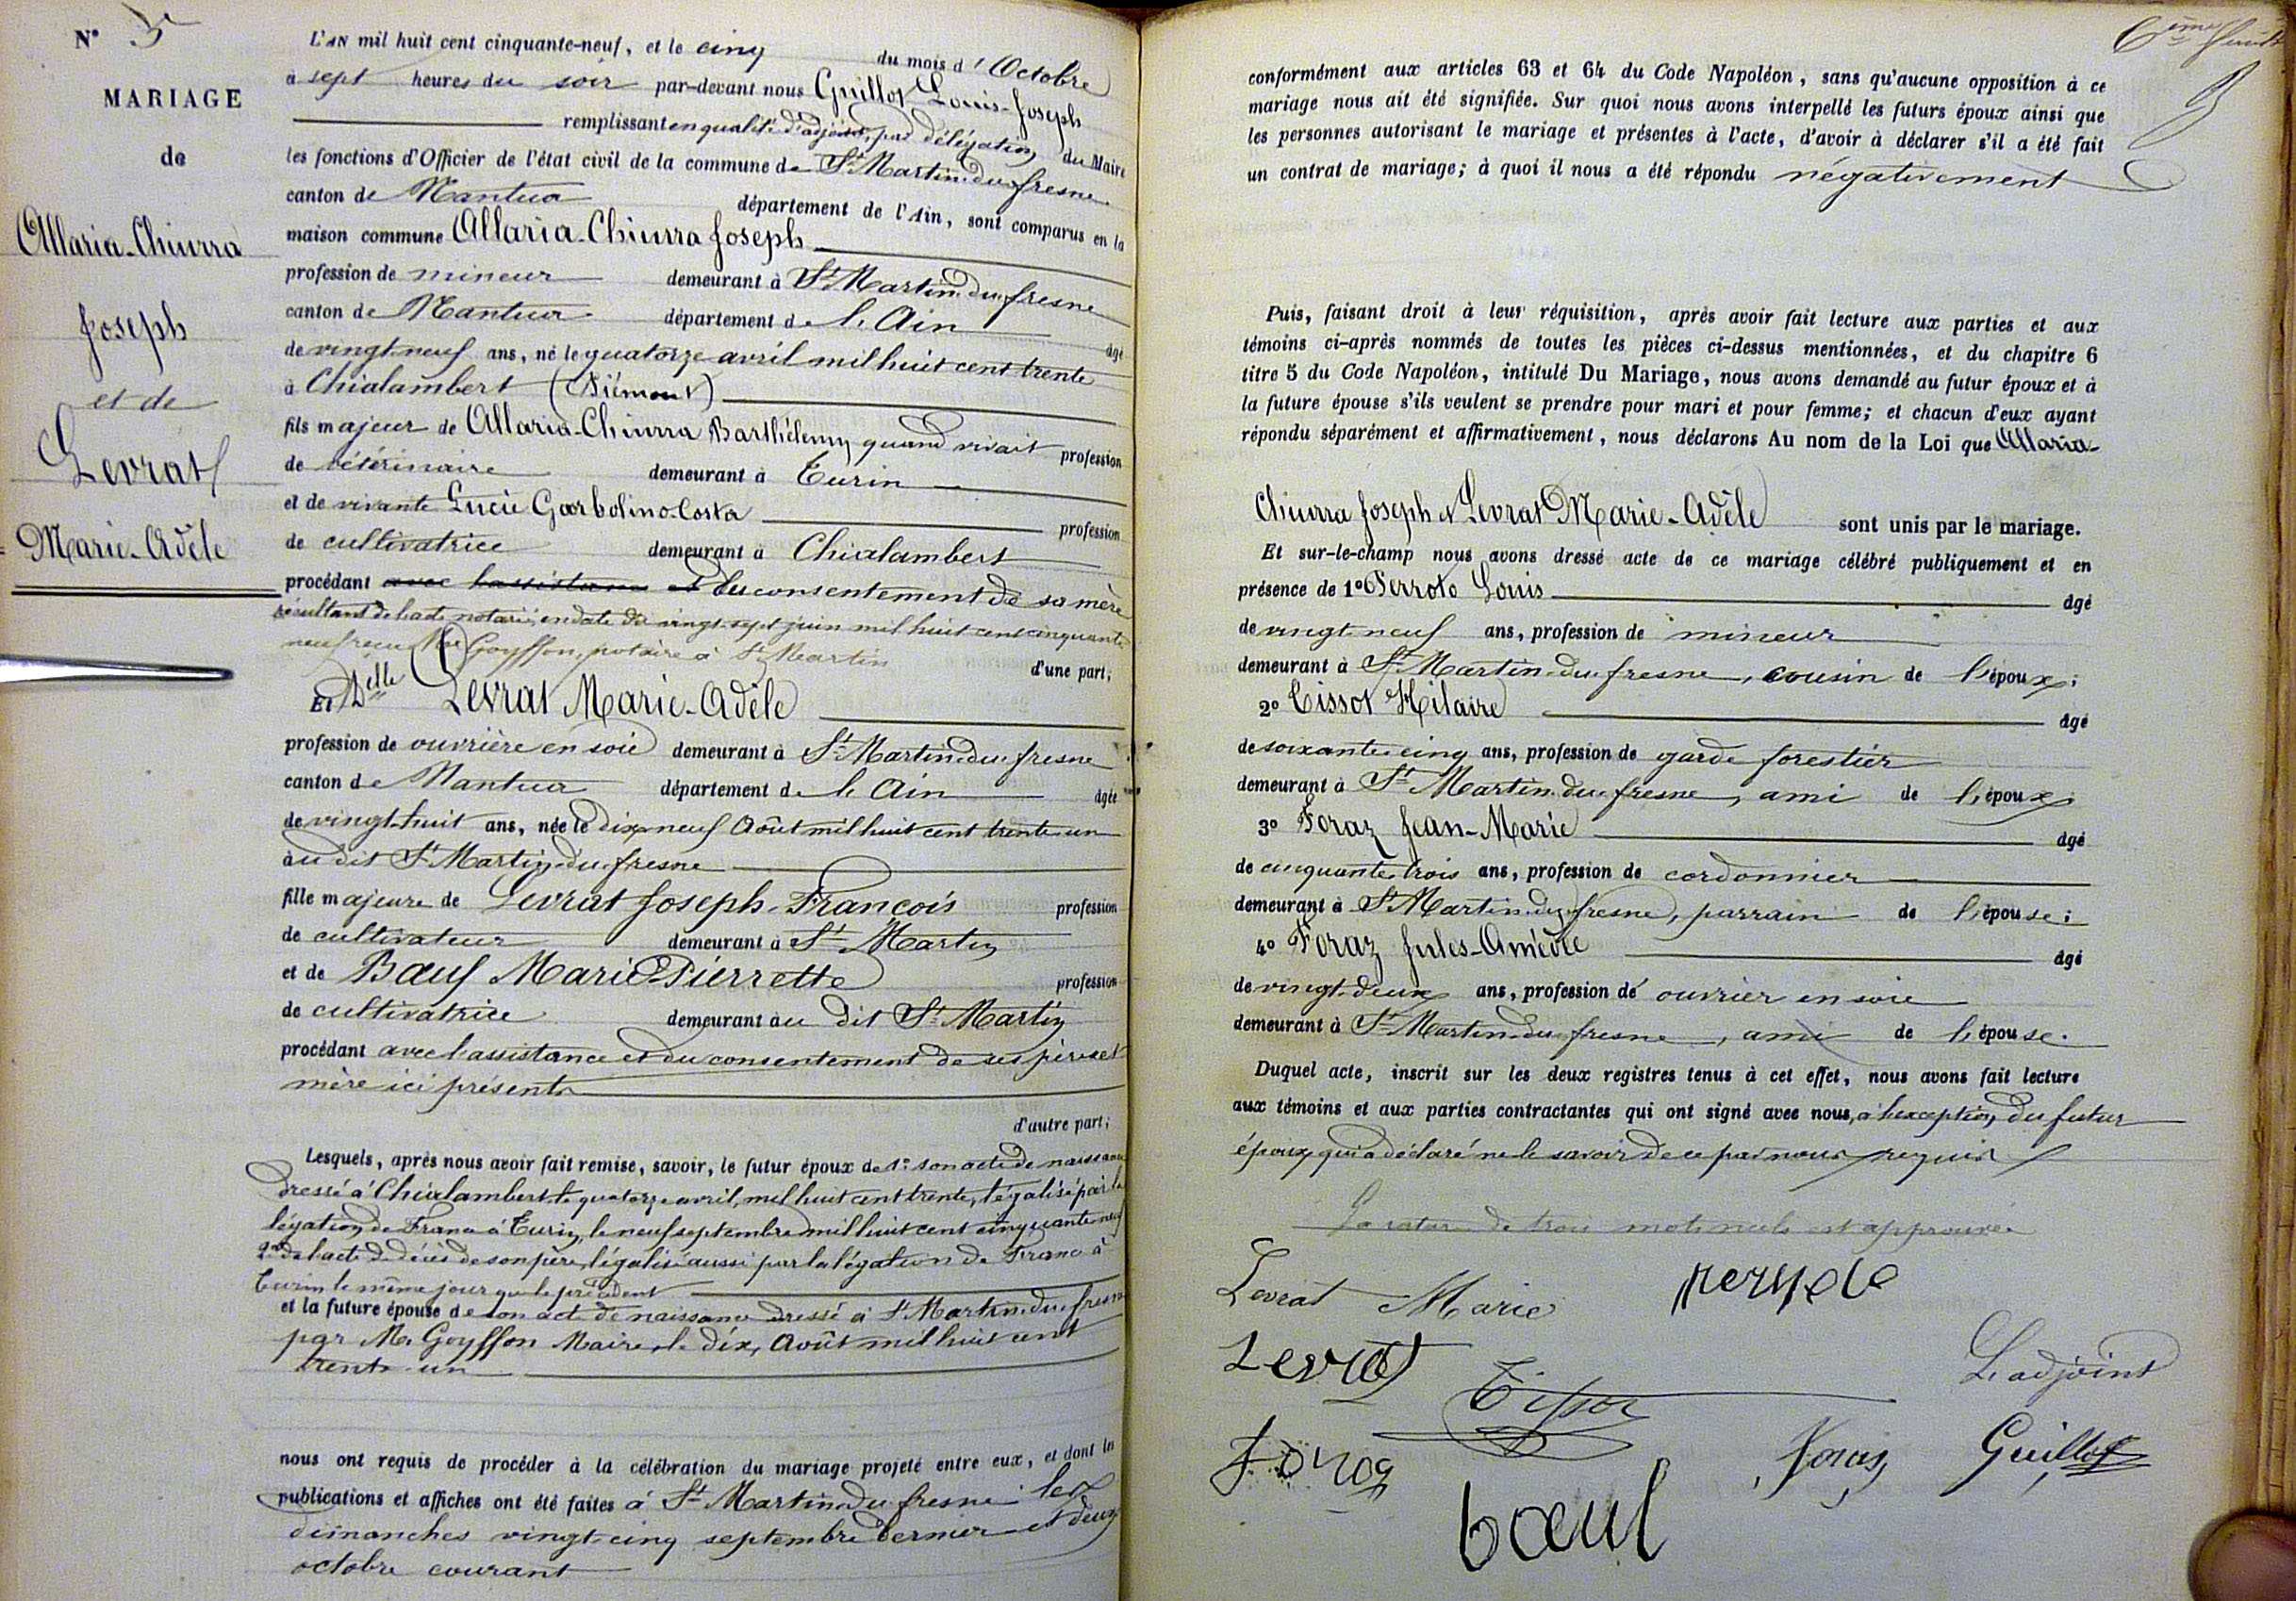 N° 5
MARIAGE
de
Allaria-Chiurra
Joseph
et de
Levrat
Marie-Adèle
L'AN mil huit cent cinquante-neuf, et le cinq du mois d'Octobre
à sept heures du soir par-devant nous Guillot Louis-Joseph
remplissant en qualité d'adjoint, par délégation du Maire
les fonctions d'Officier de l'état civil de la commune de St Martin-du-fresne
canton de Nantua département de l'Ain, sont comparus en la
maison commune Allaria-Chiurra Joseph
profession de mineur demeurant à St Martin-du-fresne
canton de Nantua département de l'Ain âgé
de vingt-neuf ans, né le quatorze avril mil huit cent trente
à Chialambert (Piémont)
fils majeur de Allaria-Chiurra Barthélemy quand vivait profession
de vétérinaire demeurant à Turin
et de vivante Lucie Garbolino-Costa profession
de cultivatrice demeurant à Chialambert
procédant avec l'assistance et du consentement de sa mère
résultant de l'acte notarié, en date du vingt-sept juin mil huit cent cinquante
neuf reçu Me Goyffon, notaire à St Martin
d'une part;
Et Delle Levrat Marie-Adèle
profession de ouvrière en soie demeurant à St Martin-du-fresne
canton de Nantua département de l'Ain âgée
de vingt-huit ans, née le dix-neuf Août mil huit cent trente-un
au dit St Martin-du-fresne
fille majeure de Levrat Joseph-François profession
de cultivateur demeurant à St Martin
et de Bœuf Marie-Pierrette profession
de cultivatrice demeurant au dit St Martin
procédant avec l'assistance et du consentement de ses père et
mère ici présents
d'autre part;
Lesquels, après nous avoir fait remise, savoir, le futur époux de 1° son acte de naissance
dressé à Chialambert le quatorze avril, mil huit cent trente, légalisé par la
légation de France à Turin, le neuf septembre mil huit cent cinquante neuf
2° de l'acte de décès de son père, légalisé aussi par la légation de France à
Turin le même jour que le précédent
et la future épouse de son acte de naissance dressé à St Martin-du-fresne
par Mr Goyffon Maire, le dix, Août mil huit cent
trente-un
nous ont requis de procéder à la célébration du mariage projeté entre eux, et dont les
publications et affiches ont été faites à St Martin-du-fresne les
dimanches vingt-cinq septembre dernier et deux
octobre courant
6ème feuillet
conformément aux articles 63 et 64 du Code Napoléon, sans qu'aucune opposition à ce
mariage nous ait été signifiée. Sur quoi nous avons interpellé les futurs époux ainsi que
les personnes autorisant le mariage et présentes à l'acte, d'avoir à déclarer s'il a été fait
un contrat de mariage; à quoi il nous a été répondu négativement
Puis, faisant droit à leur réquisition, après avoir fait lecture aux parties et aux
témoins ci-après nommés de toutes les pièces ci-dessus mentionnées, et du chapitre 6
titre 5 du Code Napoléon, intitulé Du Mariage, nous avons demandé au futur époux et à
la future épouse s'ils veulent se prendre pour mari et pour femme; et chacun d'eux ayant
répondu séparément et affirmativement, nous déclarons Au nom de la Loi que Allaria-
Chiurra Joseph et Levrat Marie-Adèle sont unis par le mariage.
Et sur-le-champ nous avons dressé acte de ce mariage célébré publiquement et en
présence de 1° Perroto Louis âgé
de vingt-neuf ans, profession de mineur
demeurant à St Martin-du-fresne, cousin de l'époux;
2° Tissot Hilaire âgé
de soixante-cinq ans, profession de garde forestier
demeurant à St Martin-du-fresne, ami de l'époux;
3° Foraz Jean-Marie âgé
de cinquante-trois ans, profession de cordonnier
demeurant à St Martin-du-fresne, parrain de l'épouse;
4° Foraz Jules-Amédée âgé
de vingt-deux ans, profession de ouvrier en soie
demeurant à St Martin-du-fresne, ami de l'épouse.
Duquel acte, inscrit sur les deux registres tenus à cet effet, nous avons fait lecture
aux témoins et aux parties contractantes qui ont signé avec nous, à l'exception du futur
époux qui a déclaré ne le savoir de ce par nous requis
La rature de trois mots nuls est approuvée
Levrat Marie
Levrat
Tissot
L'adjoint
Foraz
Guillot
bœuf